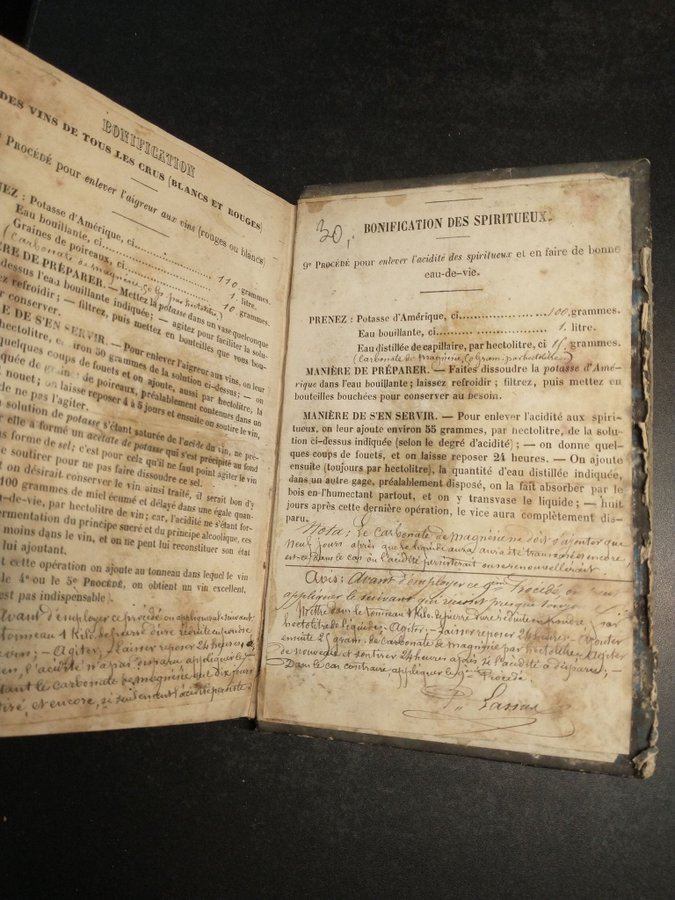 BONIFICATION
DES VINS DE TOUS LES CRUS (BLANCS ET ROUGES)
PROCÉDÉ pour enlever l'aigreur aux vins (rouges ou blancs)
Potasse d'Amérique, ci........ 110 grammes.
Eau bouillante, ci........ 1. litre.
Graines de poireaux, ci........ 10 grammes.
DE PRÉPARER. — Mettez la potasse dans un vase quelconque
dessus l'eau bouillante indiquée; — agitez pour faciliter la solu-
refroidir; — filtrez, puis mettez en bouteilles que vous bou-
conserver.
DE S'EN SERVIR. — Pour enlever l'aigreur aux vins, on leur
hectolitre, 50 grammes de la solution ci-dessus; — on
quelques coups de fouets et on ajoute, aussi par hectolitre, la
de de poireaux, préalablement contenues dans un
nouet; on laisse reposer 4 à 5 jours et ensuite on soutire le vin,
de ne pas l'agiter.
solution de potasse s'étant saturée de l'acide du vin, ne pré-
elle a formé un acétate de potasse qui s'est précipité au fond
forme de sel; c'est pour cela qu'il ne faut point agiter le vin
soutirer pour ne pas faire dissoudre ce sel.
on désirait conserver le vin ainsi traité, il serait bon d'y
100 grammes de miel écumé et délayé dans une égale quan-
-de-vie, par hectolitre de vin; car, l'acidité ne s'étant for-
fermentation du principe sucré et du principe alcoolique, ces
moins dans le vin, et on ne peut lui reconstituer son état
lui ajoutant.
cette opération on ajoute au tonneau dans lequel le vin
le 4e ou le 5e PROCÉDÉ, on obtient un vin excellent,
est pas indispensable).
Avant d'employer ce procédé on appliquera le suivant
tonneau 1 Kilo
— Agiter; — Laisser reposer 24 heures
l'acidité n'a pas disparu appliquer le
le carbonate de magnésie dix jours
et encore, si l'acidité persiste
30,
BONIFICATION DES SPIRITUEUX.
9e PROCÉDÉ pour enlever l'acidité des spiritueux et en faire de bonne
eau-de-vie.
PRENEZ : Potasse d'Amérique, ci........ 100, grammes.
Eau bouillante, ci........ 1. litre.
Eau distillée de capillaire, par hectolitre, ci grammes.
(carbonate de magnésie, gram. par hectolitre)
MANIÈRE DE PRÉPARER. — Faites dissoudre la potasse d'Amé-
rique dans l'eau bouillante; laissez refroidir; filtrez, puis mettez en
bouteilles bouchées pour conserver au besoin.
MANIÈRE DE S'EN SERVIR. — Pour enlever l'acidité aux spiri-
tueux, on leur ajoute environ 55 grammes, par hectolitre, de la solu-
tion ci-dessus indiquée (selon le degré d'acidité); — on donne quel-
ques coups de fouets, et on laisse reposer 24 heures. — On ajoute
ensuite (toujours par hectolitre), la quantité d'eau distillée indiquée,
dans un autre gage, préalablement disposé, on la fait absorber par le
bois en l'humectant partout, et on y transvase le liquide; — huit
jours après cette dernière opération, le vice aura complètement dis-
paru.
Nota: Le carbonate de magnésie ne doit s'ajouter que
neuf jours après que le liquide aura été transvasé et encore,
est-ce dans le cas où l'acidité persisterait
Avis: Avant d'employer ce 9me Procédé on
appliquer le suivant qui réussit presque toujours
Mettre dans le tonneau 1 Kilo. de pierre réduite en poudre, par
hectolitre de liquide; — Agiter; — Laisser reposer 24 heures — Ajouter
ensuite 25 gram. de carbonate de magnésie par hectolitre; Agiter
de nouveau et soutirer 24 heures après, si l'acidité a disparu; —
Dans le cas contraire, appliquer le 9me Procédé.